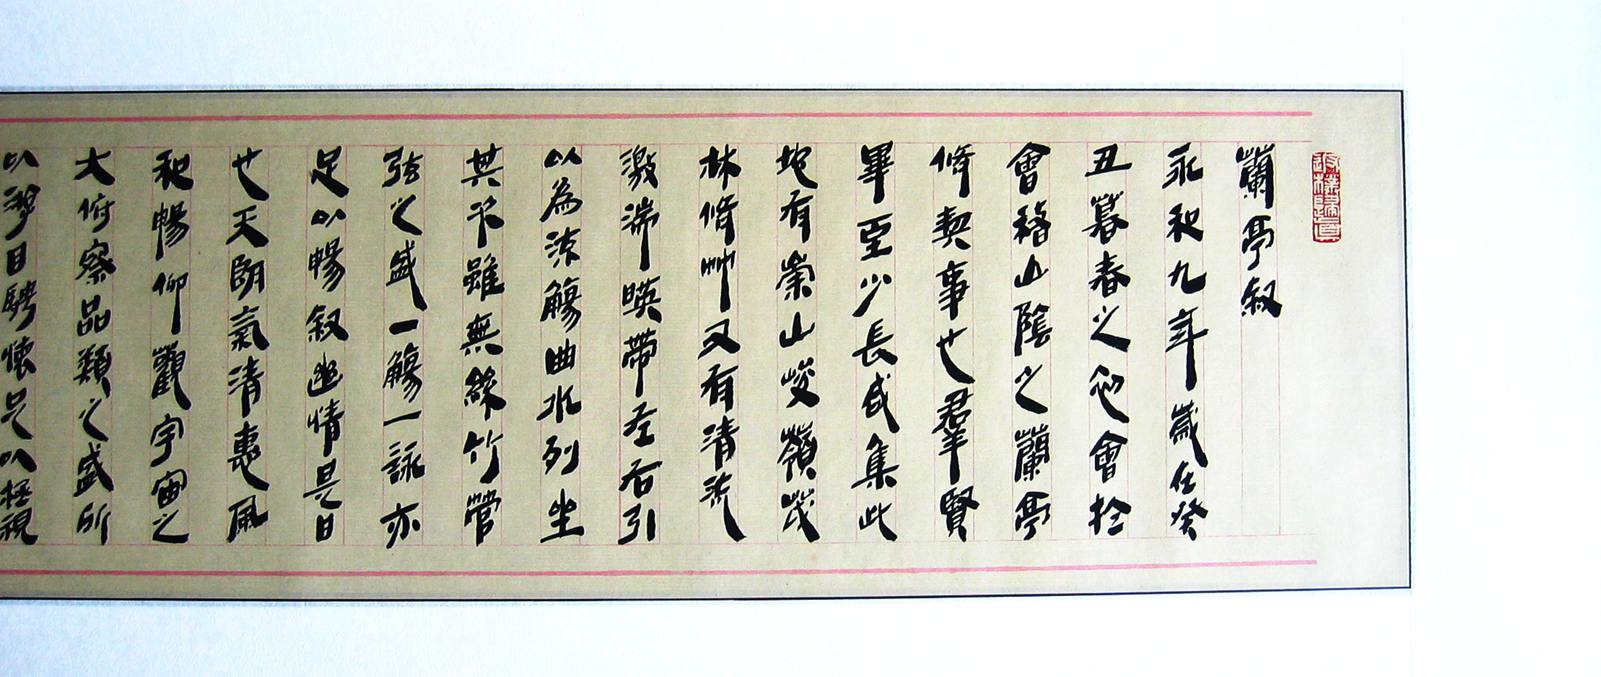 蘭亭叙
永和九年歲在癸
丑暮春之初會於
會稽山陰之蘭亭
脩禊事也羣賢
畢至少長咸集此
地有崇山峻嶺茂
林脩竹又有清流
激湍暎帶左右引
以為流觴曲水列坐
其次雖無絲竹管
弦之盛一觴一詠亦
足以暢叙幽情是日
也天朗氣清惠風
和暢仰觀宇宙之
大俯察品類之盛所
以游目騁懷足以極視